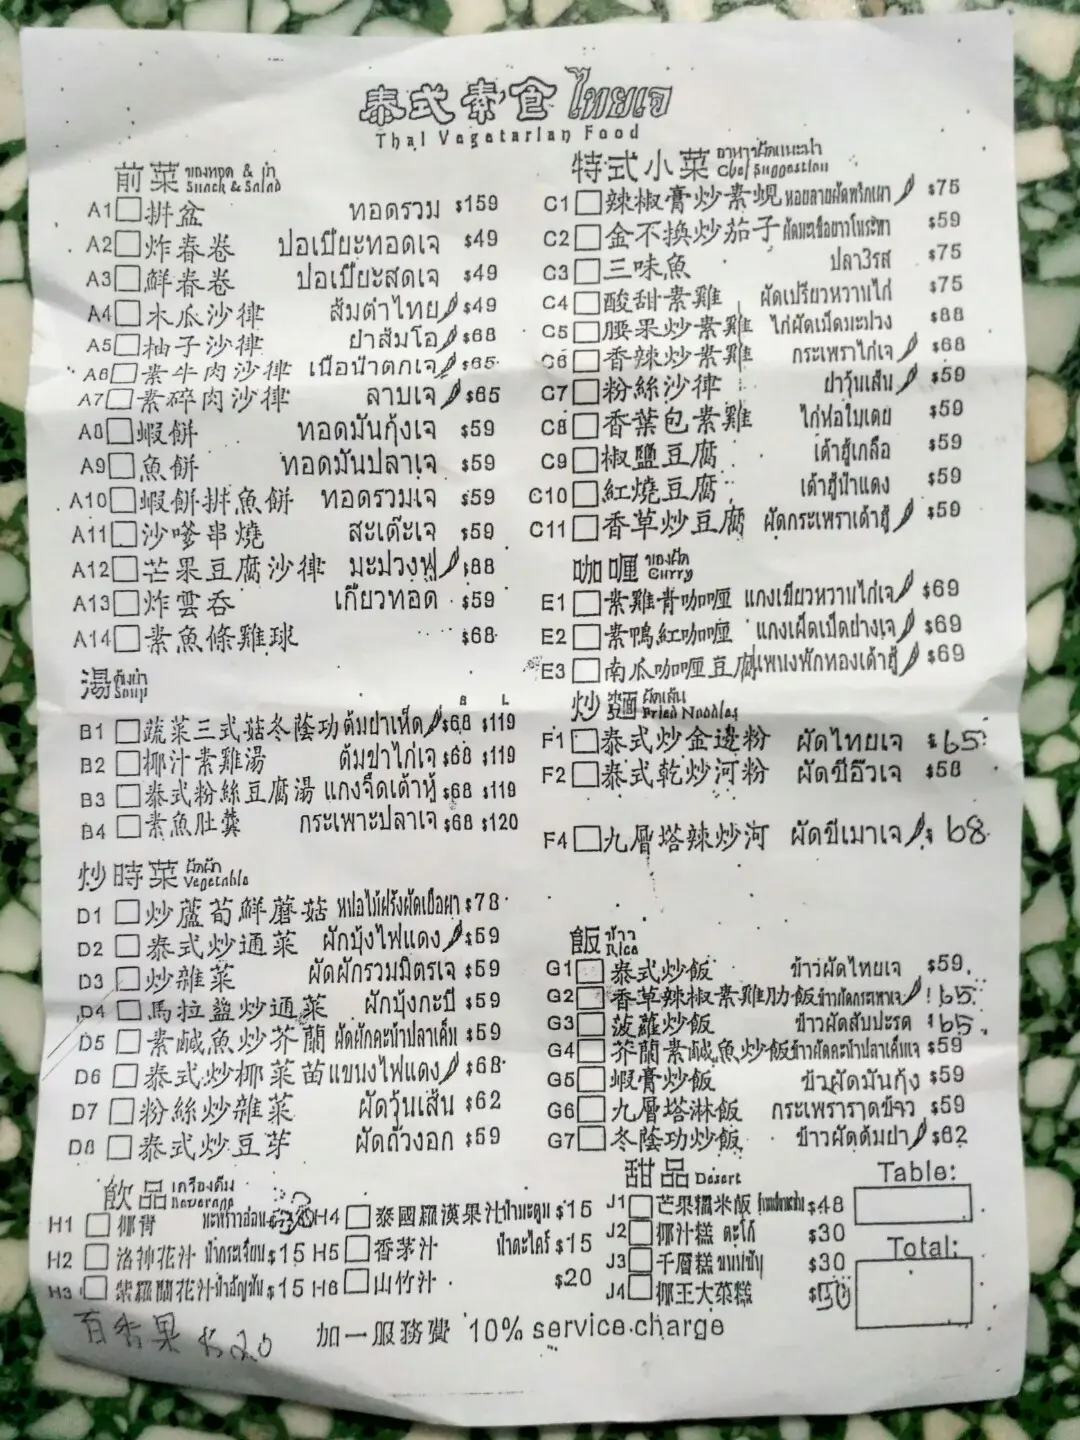 泰式素食 ไทยเจ
Thai Vegetarian Food
前菜 ของทอด & ยำ
Snack & Salad
A1 拼盆 ทอดรวม $159
A2 炸春卷 ปอเปี๊ยะทอดเจ $49
A3 鮮春卷 ปอเปี๊ยะสดเจ $49
A4 木瓜沙律 ส้มตำไทย $49
A5 柚子沙律 ยำส้มโอ $68
A6 素牛肉沙律 เนื้อน้ำตกเจ $65
A7 素碎肉沙律 ลาบเจ $65
A8 蝦餅 ทอดมันกุ้งเจ $59
A9 魚餅 ทอดมันปลาเจ $59
A10 蝦餅拼魚餅 ทอดรวมเจ $59
A11 沙嗲串燒 สะเต๊ะเจ $59
A12 芒果豆腐沙律 มะม่วงฟู $88
A13 炸雲吞 เกี๊ยวทอด $59
A14 素魚條雞球 $68
湯 ต้มยำ
Soup
S L
B1 蔬菜三式菇冬蔭功 ต้มยำเห็ด $68 $119
B2 椰汁素雞湯 ต้มข่าไก่เจ $68 $119
B3 泰式粉絲豆腐湯 แกงจืดเต้าหู้ $68 $119
B4 素魚肚羹 กระเพาะปลาเจ $68 $120
炒時菜 ผัดผัก
Vegetable
D1 炒蘆荀鮮蘑菇 หน่อไม้ฝรั่งผัดเยื่อผา $78
D2 泰式炒通菜 ผักบุ้งไฟแดง $59
D3 炒雜菜 ผัดผักรวมมิตรเจ $59
D4 馬拉盞炒通菜 ผักบุ้งกะปิ $59
D5 素鹹魚炒芥蘭 ผัดผักคะน้าปลาเค็ม $59
D6 泰式炒椰菜苗 แขนงไฟแดง $68
D7 粉絲炒雜菜 ผัดวุ้นเส้น $62
D8 泰式炒豆芽 ผัดถั่วงอก $59
特式小菜 อาหารผัดแนะนำ
Chef Suggestion
C1 辣椒膏炒素蜆 หอยลายผัดพริกเผา $75
C2 金不換炒茄子 ผัดมะเขือยาวโหระพา $59
C3 三味魚 ปลา3รส $75
C4 酸甜素雞 ผัดเปรี้ยวหวานไก่ $75
C5 腰果炒素雞 ไก่ผัดเม็ดมะม่วง $88
C6 香辣炒素雞 กระเพราไก่เจ $68
C7 粉絲沙律 ยำวุ้นเส้น $59
C8 香葉包素雞 ไก่ห่อใบเตย $59
C9 椒鹽豆腐 เต้าฮู้เกลือ $59
C10 紅燒豆腐 เต้าฮู้น้ำแดง $59
C11 香草炒豆腐 ผัดกระเพราเต้าฮู้ $59
咖喱 ของผัด
Curry
E1 素雞青咖喱 แกงเขียวหวานไก่เจ $69
E2 素鴨紅咖喱 แกงเผ็ดเป็ดย่างเจ $69
E3 南瓜咖喱豆腐 แพนงฟักทองเต้าฮู้ $69
炒麵 ผัดเส้น
Fried Noodles
F1 泰式炒金邊粉 ผัดไทยเจ $65
F2 泰式乾炒河粉 ผัดซีอิ๊วเจ $58
F4 九層塔辣炒河 ผัดขี้เมาเจ $68
飯 ข้าว
Rice
G1 泰式炒飯 ข้าวผัดไทยเจ $59
G2 香草辣椒素雞肋飯 ข้าวผัดกระเพราเจ $65
G3 菠蘿炒飯 ข้าวผัดสับปะรด $65
G4 芥蘭素鹹魚炒飯 ข้าวผัดคะน้าปลาเค็มเจ $59
G5 蝦膏炒飯 ข้าวผัดมันกุ้ง $59
G6 九層塔淋飯 กระเพราราดข้าว $59
G7 冬蔭功炒飯 ข้าวผัดต้มยำ $62
飲品 เครื่องดื่ม
Beverage
H1 椰青 มะพร้าวอ่อน
H2 洛神花汁 น้ำกระเจี๊ยบ $15
H3 紫羅蘭花汁 น้ำอัญชัน $15
H4 泰國羅漢果汁 น้ำมะตูม $15
H5 香茅汁 น้ำตะไคร้ $15
H6 山竹汁 $20
甜品 Desert
J1 芒果糯米飯 $48
J2 椰汁糕 ตะโก้ $30
J3 千層糕 ขนมชั้น $30
J4 椰王大菜糕 $50
Table:
Total:
百香果 $20
加一服務費 10% service charge